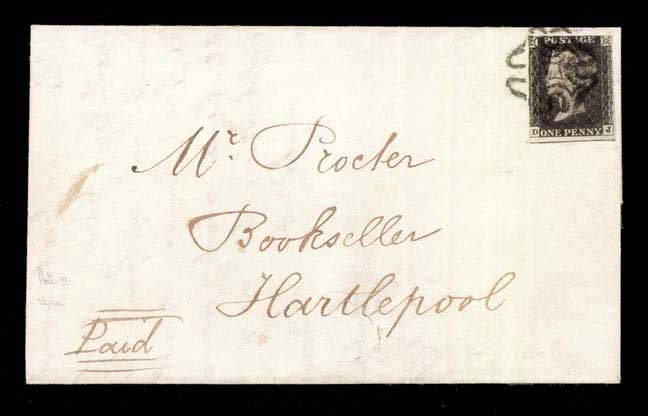 POSTAGE
D ONE PENNY J
Mr. Procter
Bookseller
Hartlepool
Paid